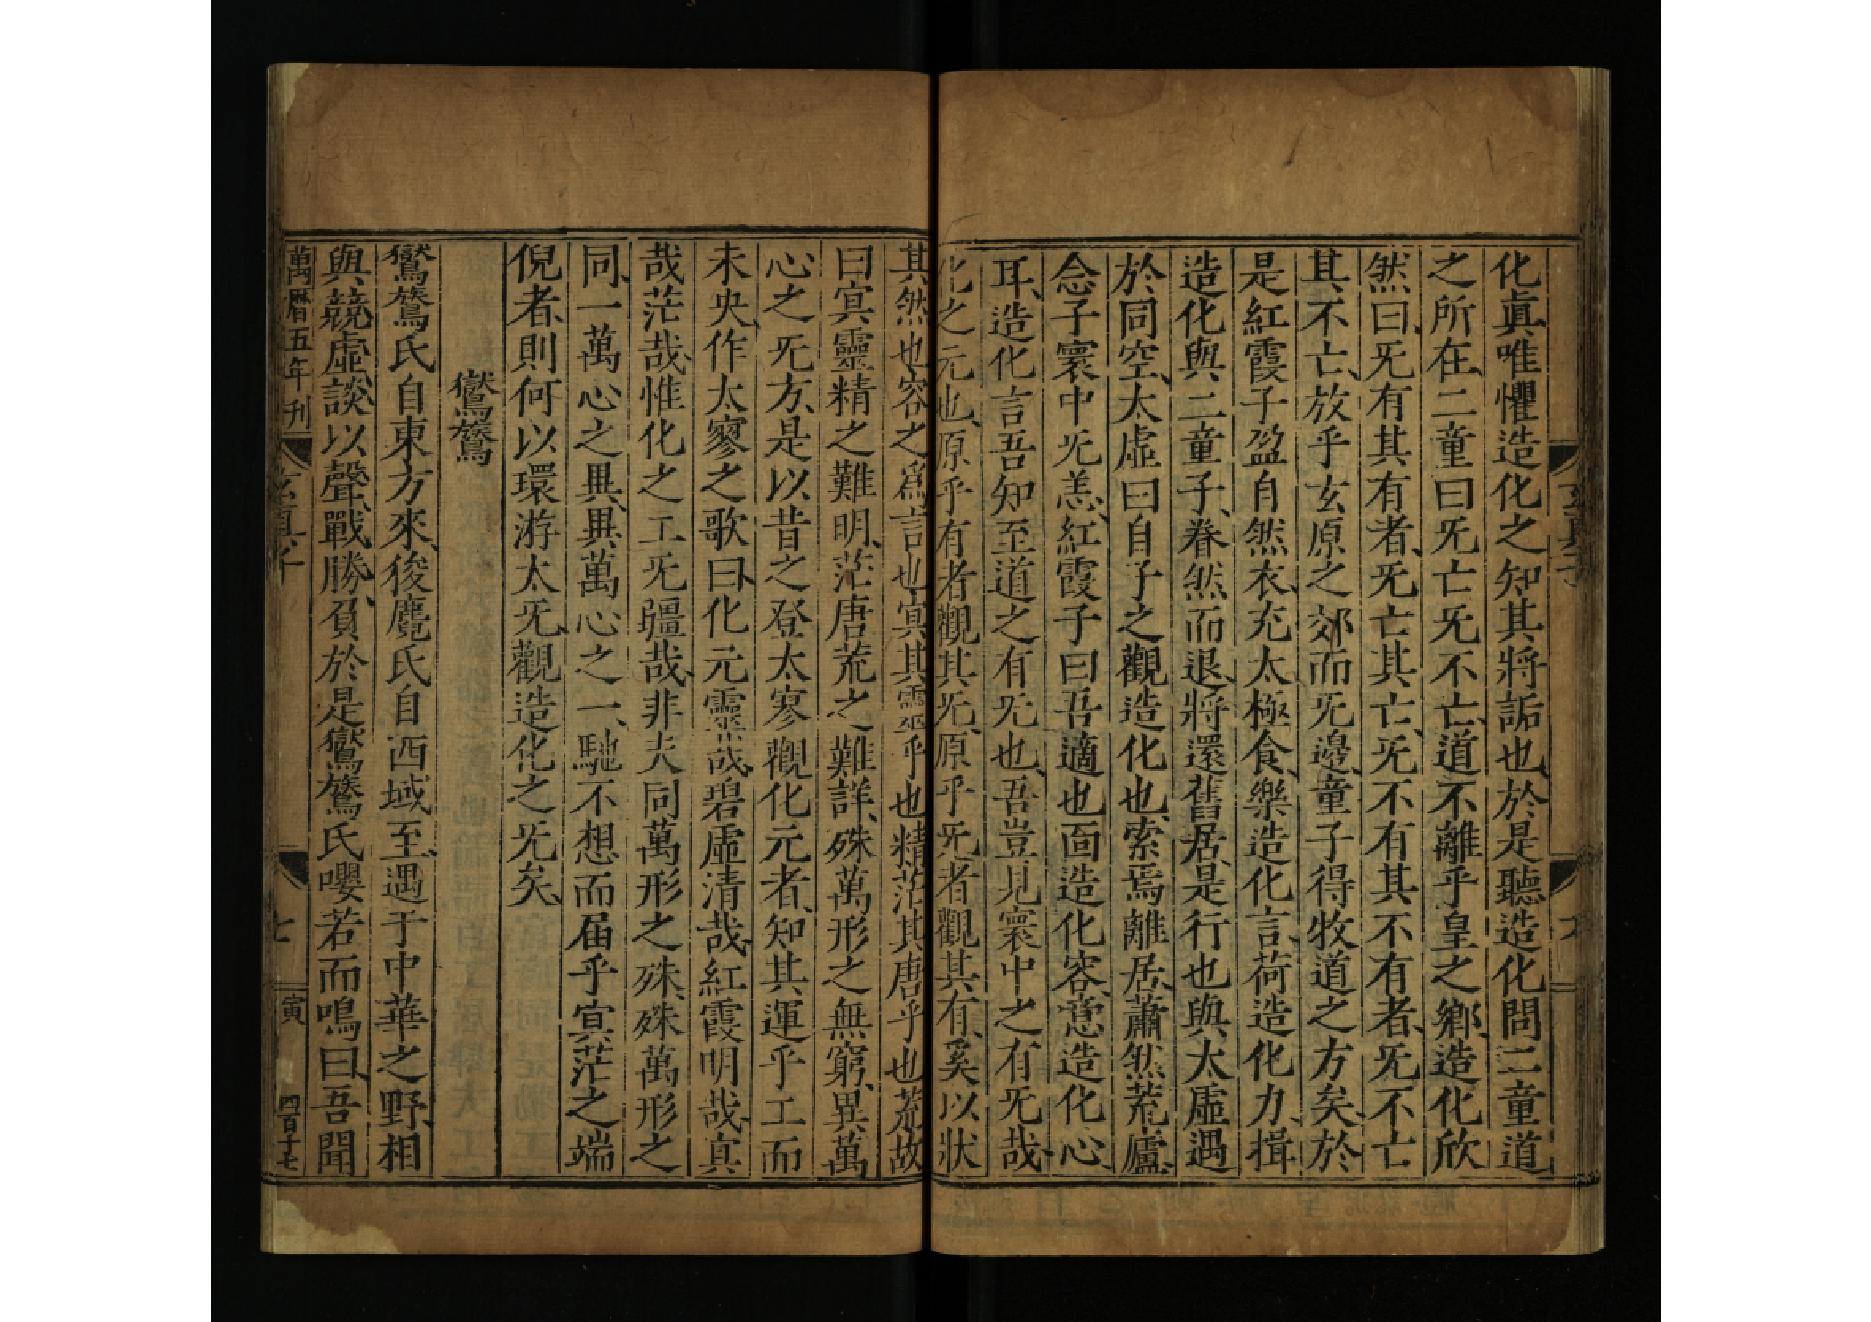 化眞唯懼造化之知其將詬也於是聽造化問二童道
之所在二童曰旡亡旡不亡道不離乎皇之鄉造化欣
然曰旡有其有者旡亡其亡旡不有其不有者旡不亡
其不亡放乎玄原之郊而旡邊童子得牧道之方矣於
是紅霞子盈自然衣充太極食樂造化言荷造化力揖
造化與二童子眷然而退將還舊居是行也與太虛遇
於同空太虛曰自子之觀造化也索焉離居蕭然荒廬
念子寰中旡恙紅霞子曰吾適也面造化容意造化心
耳造化言吾知至道之有旡也吾豈見寰中之有旡哉
化之元也原乎有者觀其旡原乎旡者觀其有奚以狀
其然也容之爲言也冥其靈乎也精茫其唐乎也荒故
曰冥靈精之難明茫唐荒之難詳殊萬形之無窮異萬
心之旡方是以昔之登太寥觀化元者知其運乎工而
未央作太寥之歌曰化元靈哉碧虛清哉紅霞明哉冥
哉茫哉惟化之工旡疆哉非夫同萬形之殊殊萬形之
同一萬心之異異萬心之一馳不想而届乎冥茫之端
倪者則何以環游太旡觀造化之旡矣
鸑鷟
鸑鷟氏自東方來狻麑氏自西域至遇于中華之野相
與競虛談以聲戰勝負於是鸑鷟氏嚶若而鳴曰吾聞
萬曆五年刊 玄眞子 七 寅 四百十七